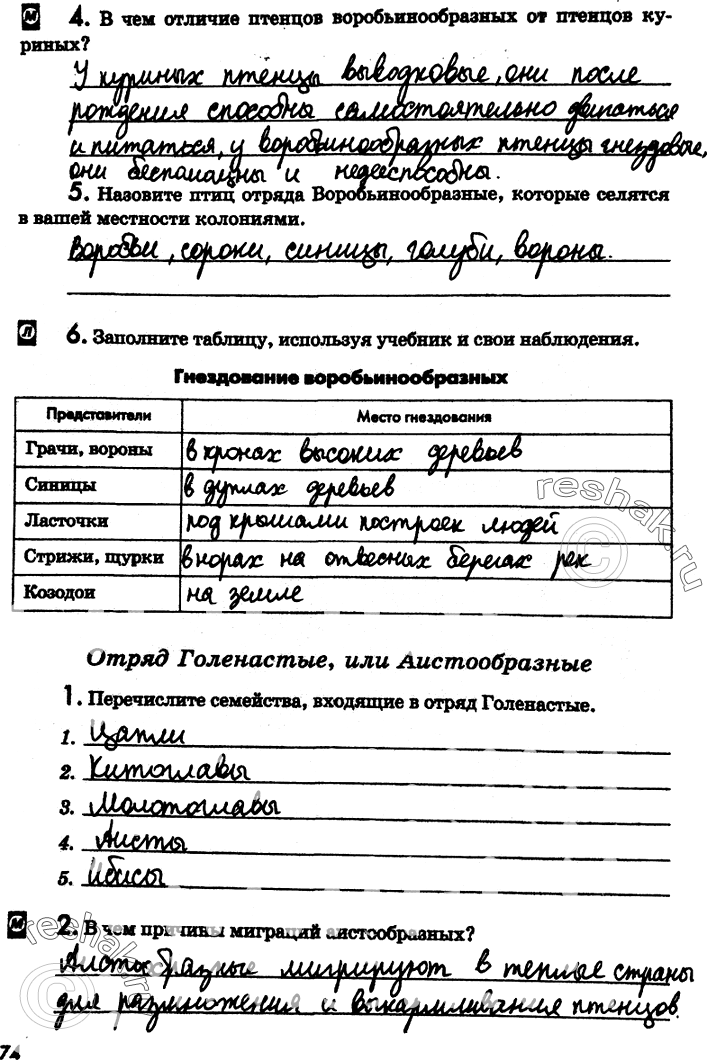 М 4. В чем отличие птенцов воробьинообразных от птенцов ку-
риных?
У куриных птенцы выводковые, они после
рождения способны самостоятельно двигаться
и питаться, у воробьинообразных птенцы гнездовые,
они беспомощны и недееспособны.
5. Назовите птиц отряда Воробьинообразные, которые селятся
в вашей местности колониями.
Воробьи, сороки, синицы, голуби, вороны.
Л 6. Заполните таблицу, используя учебник и свои наблюдения.
Гнездование воробьинообразных
Представители Место гнездования
Грачи, вороны в кронах высоких деревьев
Синицы в дуплах деревьев
Ласточки под крышами построек людей
Стрижи, щурки в норах на отвесных берегах рек
Козодои на земле
reshak.ru
Отряд Голенастые, или Аистообразные
1. Перечислите семейства, входящие в отряд Голенастые.
1. Цапли
2. Китоглавы
3. Молотоглавы
4. Аисты
5. Ибисы
М 2. В чем причины миграций аистообразных?
Аистообразные мигрируют в теплые страны
для размножения и выкармливания птенцов.
reshak.ru
74